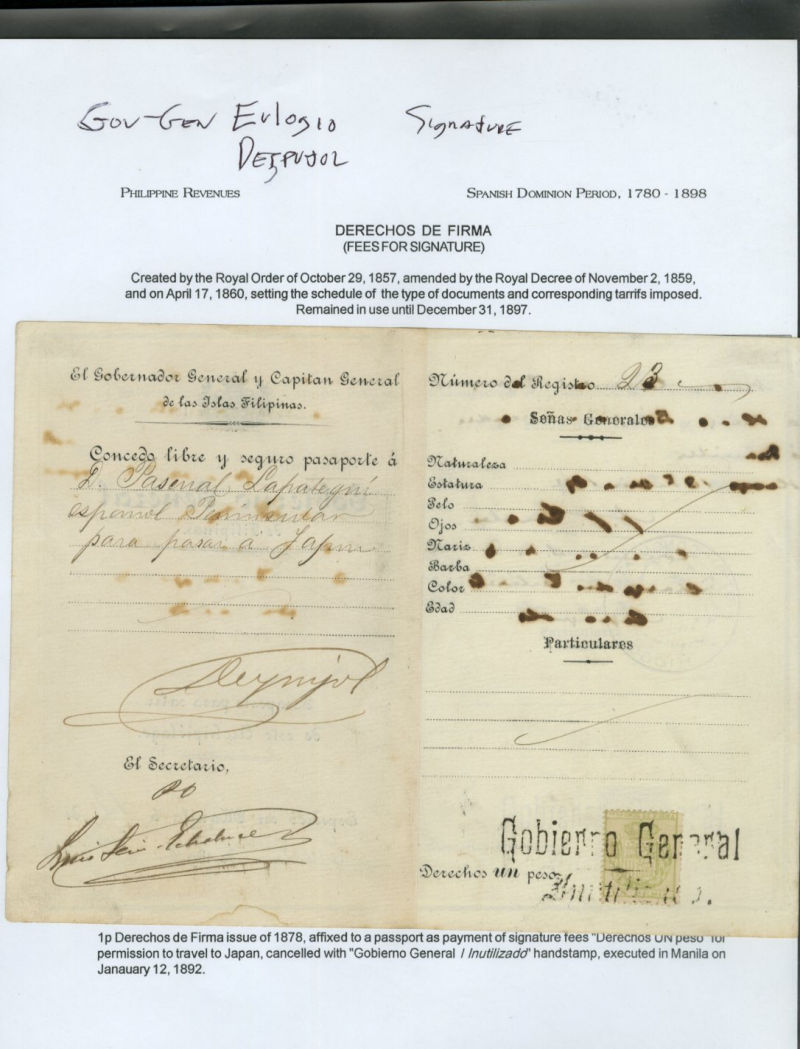 Gov-Gen Eulogio Signature
Despujol
Philippine Revenues Spanish Dominion Period, 1780 - 1898
DERECHOS DE FIRMA
(FEES FOR SIGNATURE)
Created by the Royal Order of October 29, 1857, amended by the Royal Decree of November 2, 1859,
and on April 17, 1860, setting the schedule of the type of documents and corresponding tarrifs imposed.
Remained in use until December 31, 1897.
El Gobernador General y Capitan General
de las Islas Filipinas.
Concedo libre y seguro pasaporte á
D. Pascual
español Peninsular
para pasar á Japon
Despujol
El Secretario,
Número del Registro 23
Señas Generales
Naturaleza
Estatura
Pelo
Ojos
Nariz
Barba
Color
Edad
Particulares
Gobierno General
Derechos un peso
Inutilizado.
1p Derechos de Firma issue of 1878, affixed to a passport as payment of signature fees "Derechos UN peso" for
permission to travel to Japan, cancelled with "Gobierno General / Inutilizado" handstamp, executed in Manila on
Janauary 12, 1892.